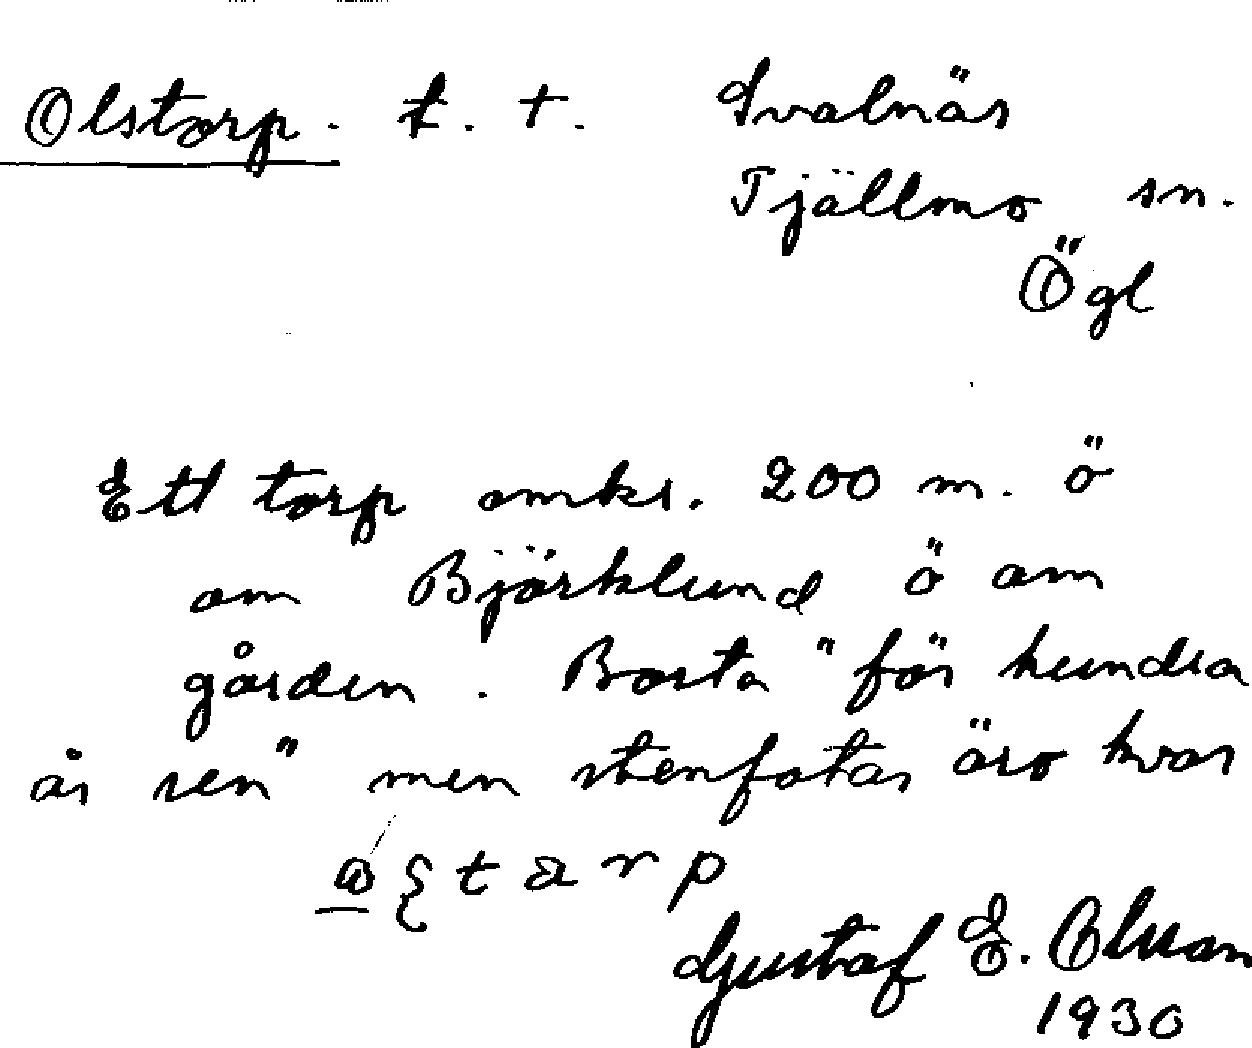 Olstorp. t. t. Svalnäs
Tjällmo sn.
Ögl
Ett torp omkr. 200 m. ö
om Björklund ö om
gården. Borta "för hundra
år sen" men stenfotar äro kvar
Gustaf E. Olsson
1930